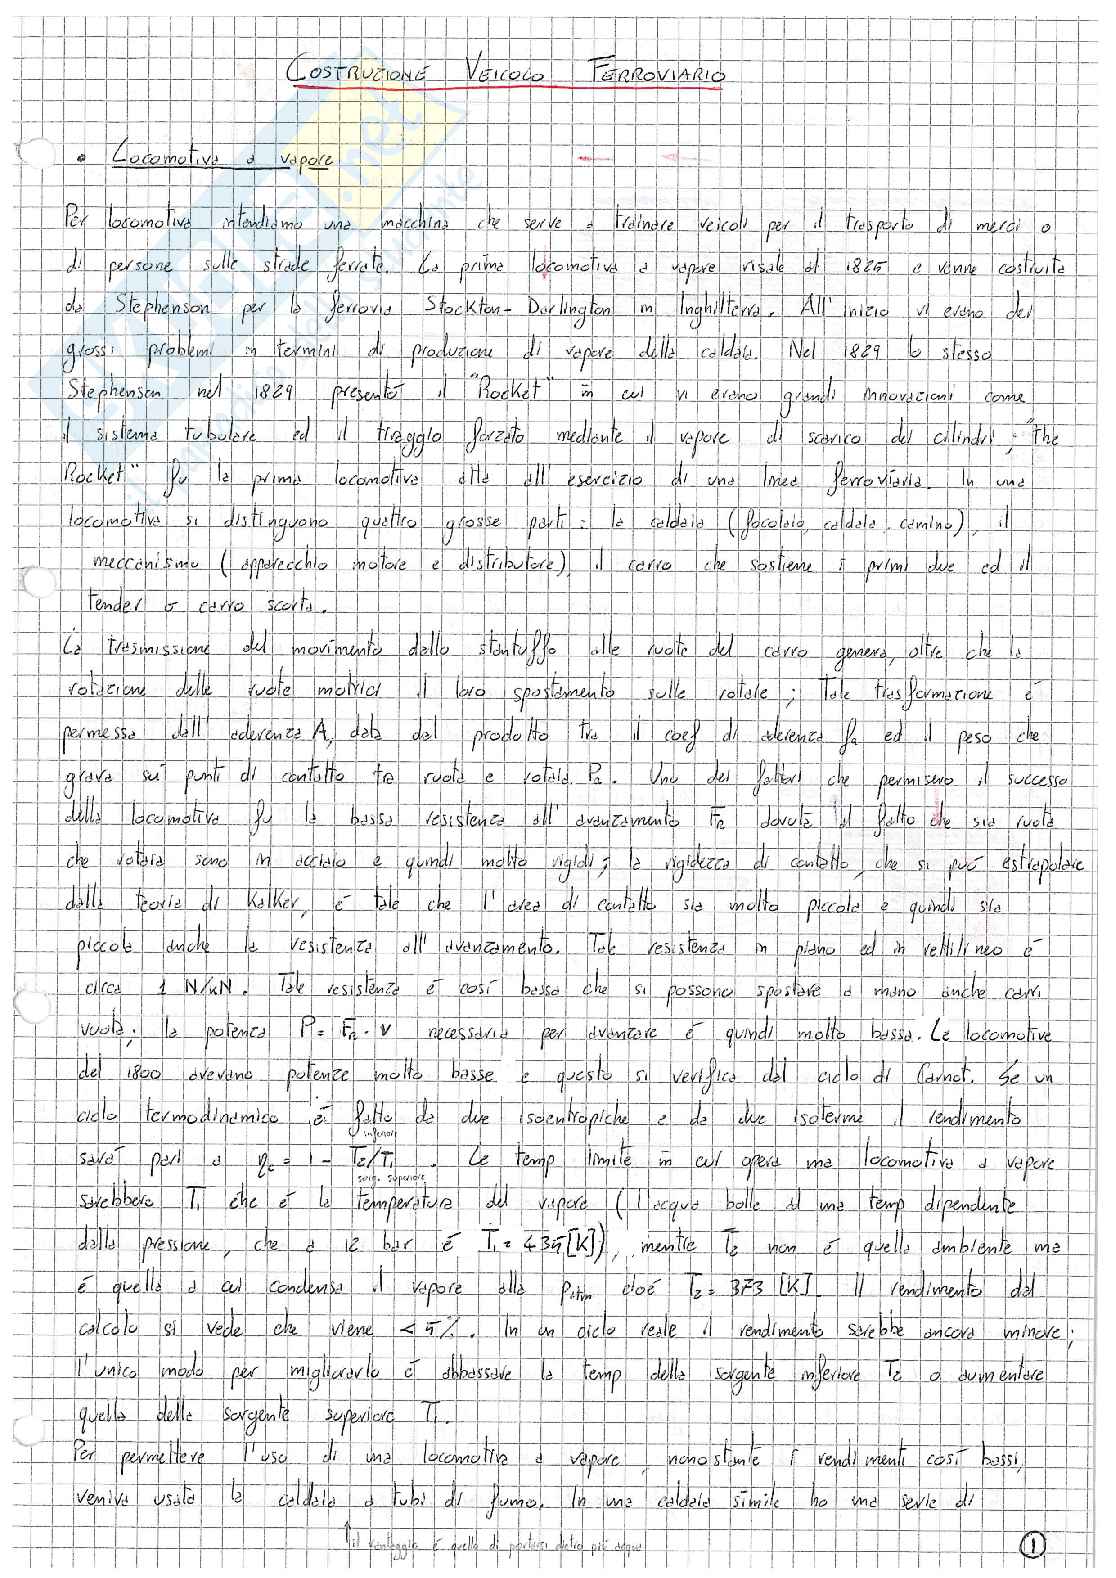 COSTRUZIONE VEICOLO FERROVIARIO
• Locomotiva a vapore
Per locomotiva intendiamo una macchina che serve a trainare veicoli per il trasporto di merci o
di persone sulle strade ferrate. La prima locomotiva a vapore risale al 1825 e venne costruita
da Stephenson per la ferrovia Stockton-Darlington in Inghilterra. All'inizio vi erano dei
grossi problemi in termini di produzione di vapore della caldaia. Nel 1829 lo stesso
Stephenson nel 1829 presentò il "Rocket" in cui vi erano grandi innovazioni come
il sistema tubolare ed il tiraggio forzato mediante il vapore di scarico dei cilindri; "The
Rocket" fu la prima locomotiva atta all'esercizio di una linea ferroviaria. In una
locomotiva si distinguono quattro grosse parti: la caldaia (focolaio, caldaia, camino), il
meccanismo (apparecchio motore e distributore), il carro che sostiene i primi due ed il
tender o carro scorta.
La trasmissione del movimento dallo stantuffo alle ruote del carro genera, oltre che la
rotazione delle ruote motrici il loro spostamento sulle rotaie; Tale trasformazione è
permessa dall'aderenza A, data dal prodotto tra il coef di aderenza fa ed il peso che
grava sui punti di contatto tra ruota e rotaia Pa. Uno dei fattori che permisero il successo
della locomotiva fu la bassa resistenza all'avanzamento FR dovuta al fatto che sia ruota
che rotaia sono in acciaio e quindi molto rigidi; la rigidezza di contatto, che si può estrapolare
dalla teoria di Kalker, è tale che l'area di contatto sia molto piccola e quindi sia
piccola anche la resistenza all'avanzamento. Tale resistenza in piano ed in rettilineo è
circa 1 N/kN. Tale resistenza è così bassa che si possono spostare a mano anche carri
vuoti; la potenza P = FR · v necessaria per avanzare è quindi molto bassa. Le locomotive
del 1800 avevano potenze molto basse e questo si verifica dal ciclo di Carnot. Se un
ciclo termodinamico è fatto da due isoentropiche e da due isoterme il rendimento
inferiori
sarà pari a ηc = 1 - T2/T1 . Le temp limite in cui opera una locomotiva a vapore
sorg. superiore
sarebbero T1 che è la temperatura del vapore (l'acqua bolle ad una temp dipendente
dalla pressione, che a 12 bar è T1 = 435 [K]), mentre T2 non è quella ambiente ma
è quella a cui condensa il vapore alla patm cioè T2 = 373 [K]. Il rendimento dal
calcolo si vede che viene < 5%. In un ciclo reale il rendimento sarebbe ancora minore;
l'unico modo per migliorarlo è abbassare la temp della sorgente inferiore T2 o aumentare
quella della sorgente superiore T1.
Per permettere l'uso di una locomotiva a vapore, nonostante i rendimenti così bassi,
veniva usata la caldaia a tubi di fumo. In una caldaia simile ho una serie di
↑ il vantaggio è quello di portarsi dietro più acqua
1